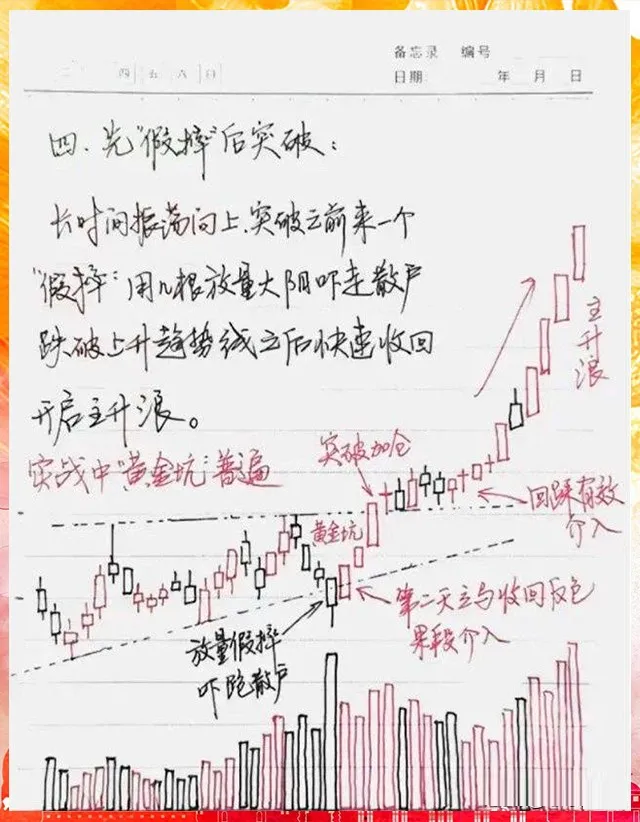 备忘录 编号
四 五 六 日
日期: 年 月 日
四、先"假摔"后突破:
长时间振荡向上,突破之前来一个
"假摔":用几根放量大阴吓走散户
跌破上升趋势线之后快速收回
开启主升浪。
实战中"黄金坑"普遍
主升浪
突破加仓
回踩有效
介入
黄金坑
第二天立马收回反包
果断介入
放量假摔
吓跑散户